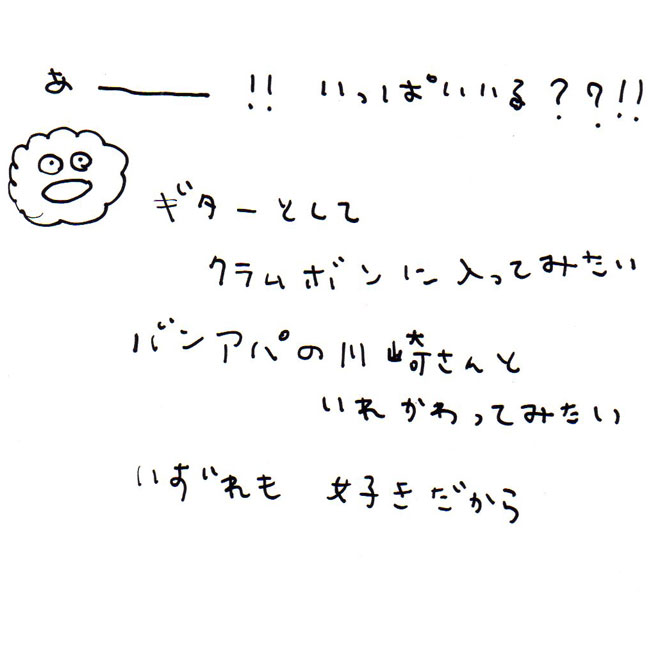 あ──!! いっぱいいる??!!
ギターとして
クラムボンに入ってみたい
バンアパの川崎さんと
いれかわってみたい
いずれも 好きだから